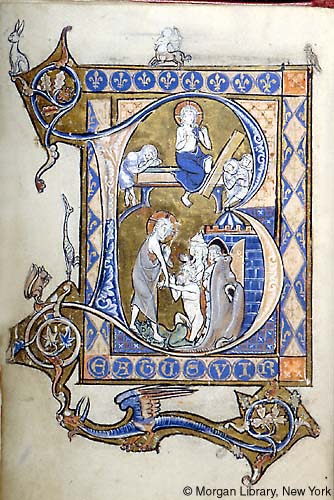 B
EATUSVIR
© Morgan Library, New York